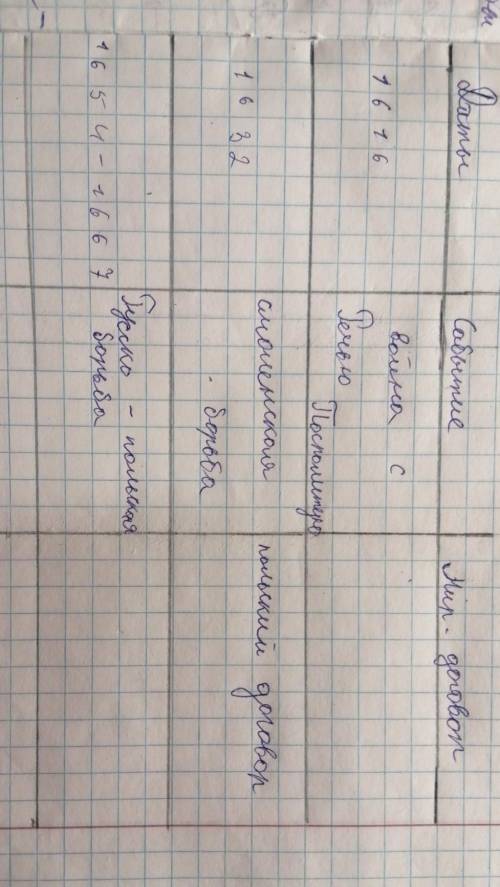 Даты Событие Мир. договор
1616 война с
Речью Посполитую
1632 смоленская польский договор
борьба
1654-1667 Русско - польская
борьба